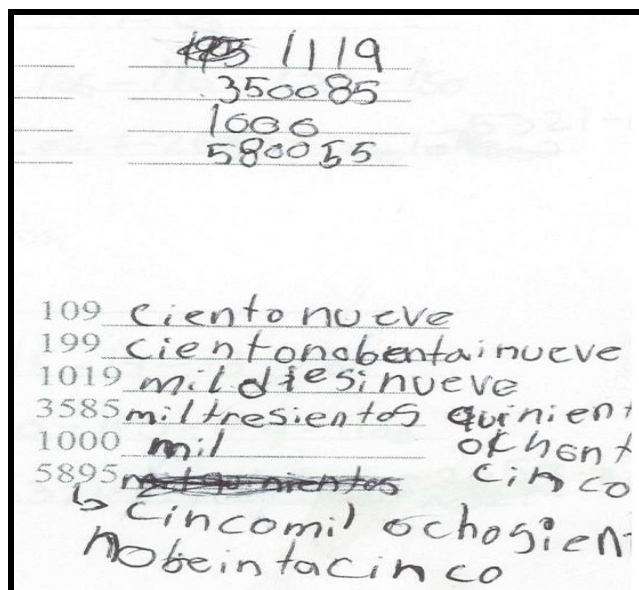 1119
350085
1000
580055
109 ciento nueve
199 cientonobentainueve
1019 mil diesinueve
3585 miltresientos quinient
1000 mil ochent
5895 cinco
↳ cincomil ochosient
nobeintacinco